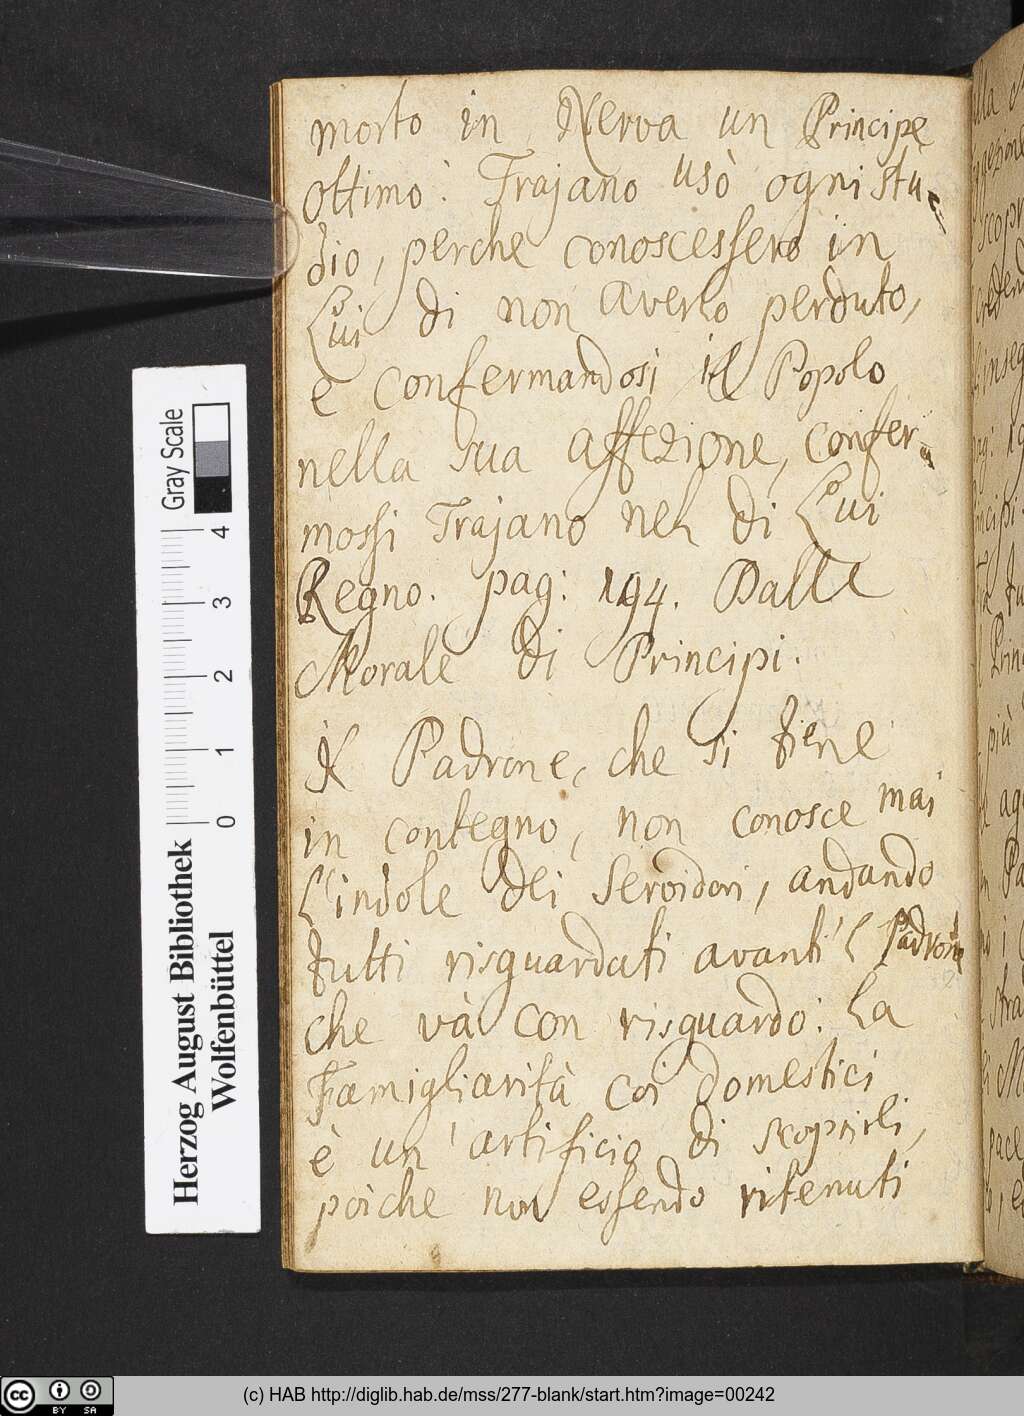 morto in Nerva un Principe
Ottimo. Trajano usò ogni stu=
dio, perche conoscessero in
Lui di non averlo perduto,
e confermandosi il Popolo
nella sua affezione, confer=
mossi Trajano nel di Lui
Regno. pag: 194. Dalle
Morale di Principi.
il Padrone, che si tiene
in contegno, non conosce mai
L'indole dei Servidori, andando
tutti risguardati avanti'l Padrone
che và con risguardo. La
Famigliarità coi domestici
è un' artificio di scoprirli,
poiche non essendo ritenuti
Gray Scale
0 1 2 3 4
Herzog August Bibliothek
Wolfenbüttel
cc BY SA
(c) HAB http://diglib.hab.de/mss/277-blank/start.htm?image=00242